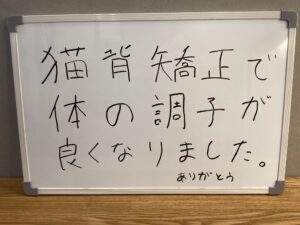 猫背矯正で
体の調子が
良くなりました。
ありがとう